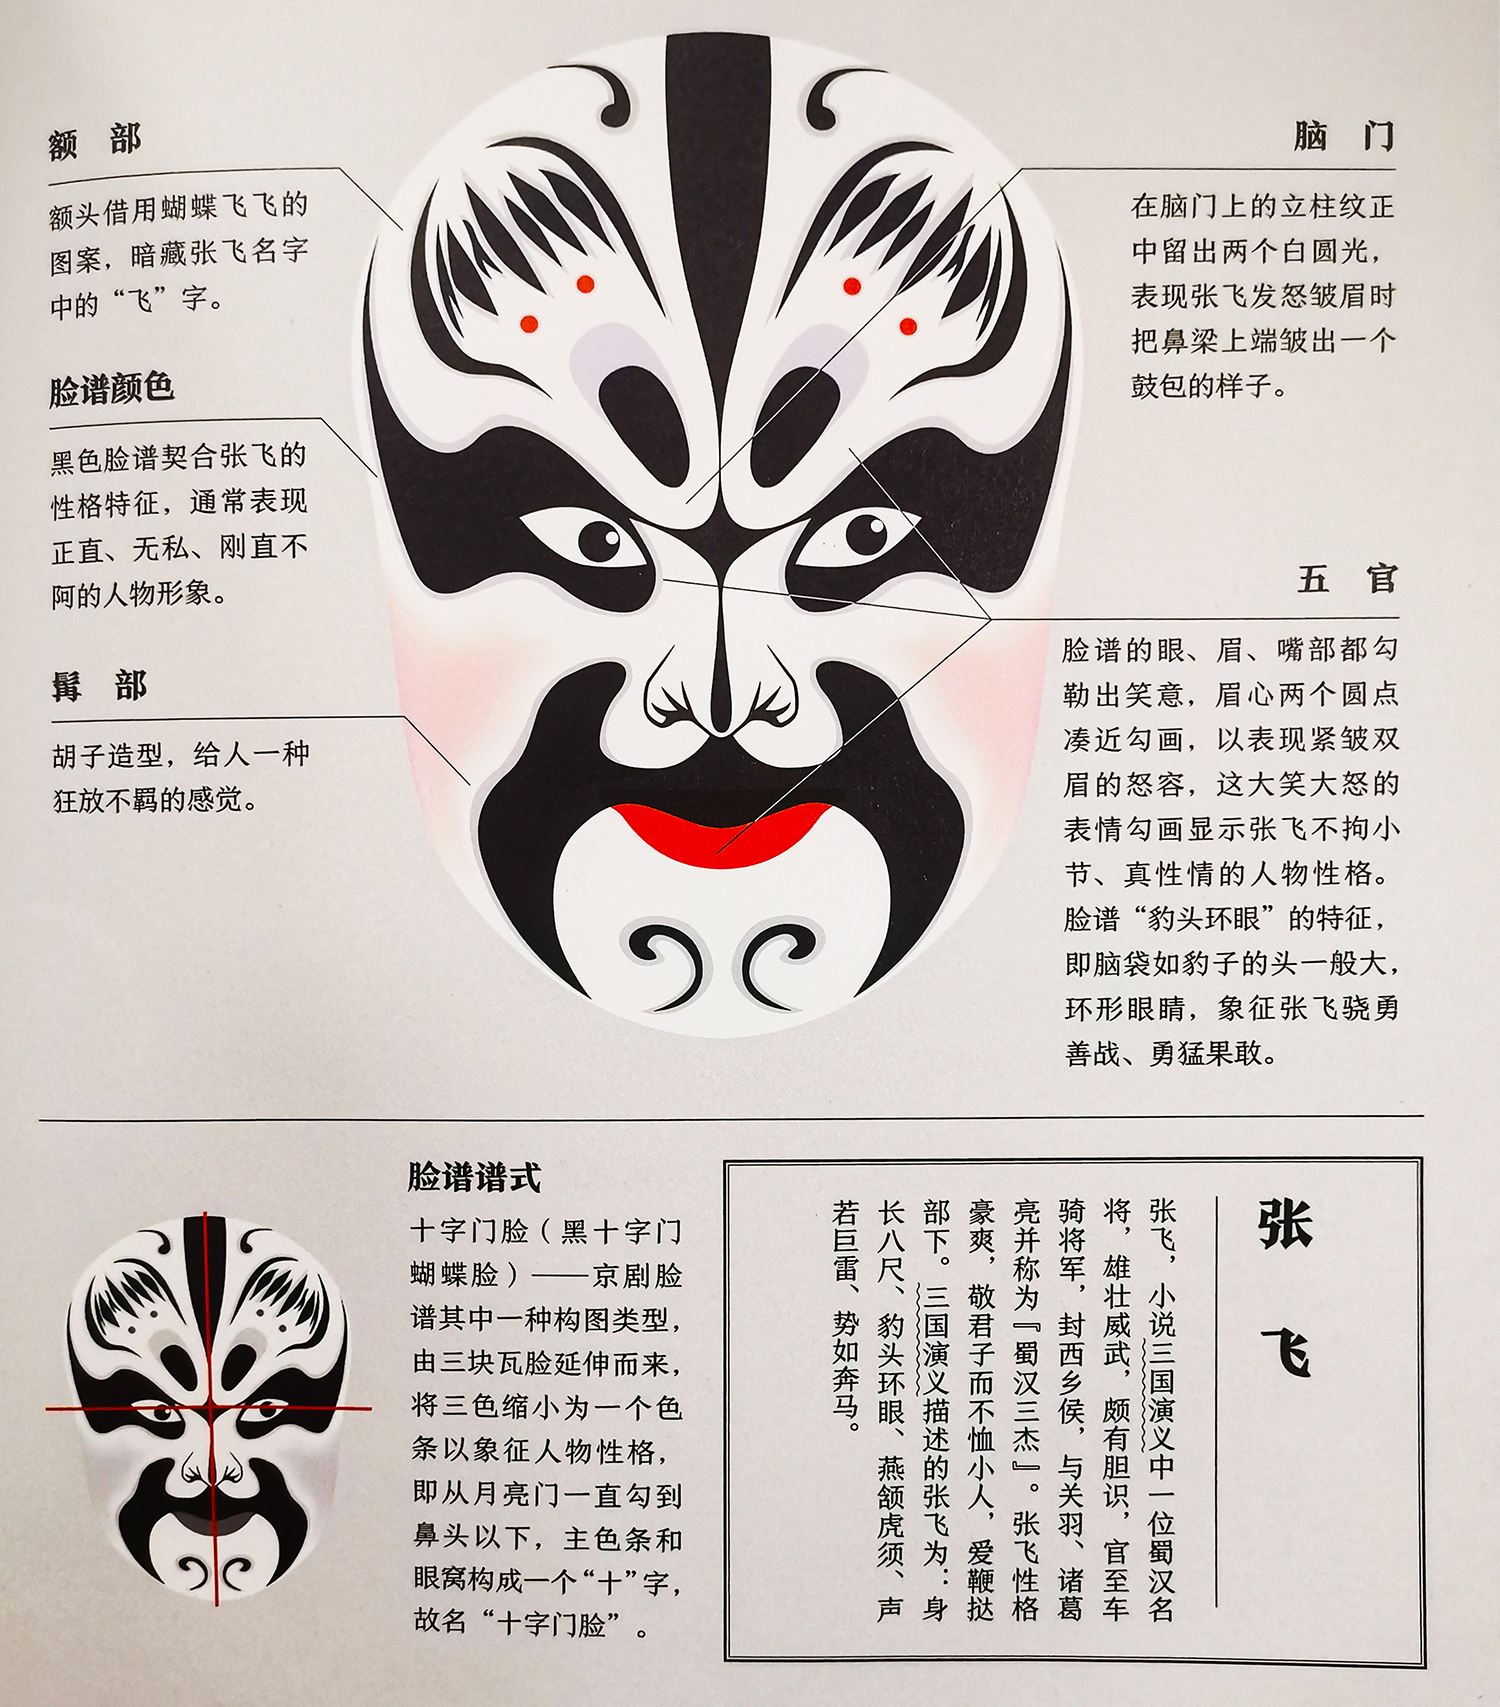 额部
额头借用蝴蝶飞飞的
图案，暗藏张飞名字
中的“飞”字。
脸谱颜色
黑色脸谱契合张飞的
性格特征，通常表现
正直、无私、刚直不
阿的人物形象。
髯部
胡子造型，给人一种
狂放不羁的感觉。
脑门
在脑门上的立柱纹正
中留出两个白圆光，
表现张飞发怒皱眉时
把鼻梁上端皱出一个
鼓包的样子。
五官
脸谱的眼、眉、嘴部都勾
勒出笑意，眉心两个圆点
凑近勾画，以表现紧皱双
眉的怒容，这大笑大怒的
表情勾画显示张飞不拘小
节、真性情的人物性格。
脸谱“豹头环眼”的特征，
即脑袋如豹子的头一般大，
环形眼睛，象征张飞骁勇
善战、勇猛果敢。
脸谱谱式
十字门脸（黑十字门
蝴蝶脸）——京剧脸
谱其中一种构图类型，
由三块瓦脸延伸而来，
将三色缩小为一个色
条以象征人物性格，
即从月亮门一直勾到
鼻头以下，主色条和
眼窝构成一个“十”字，
故名“十字门脸”。
张飞
张飞，小说三国演义中一位蜀汉名
将，雄壮威武，颇有胆识，官至车
骑将军，封西乡侯，与关羽、诸葛
亮并称为『蜀汉三杰』。张飞性格
豪爽，敬君子而不恤小人，爱鞭挞
部下。三国演义描述的张飞为：身
长八尺、豹头环眼、燕颔虎须、声
若巨雷、势如奔马。